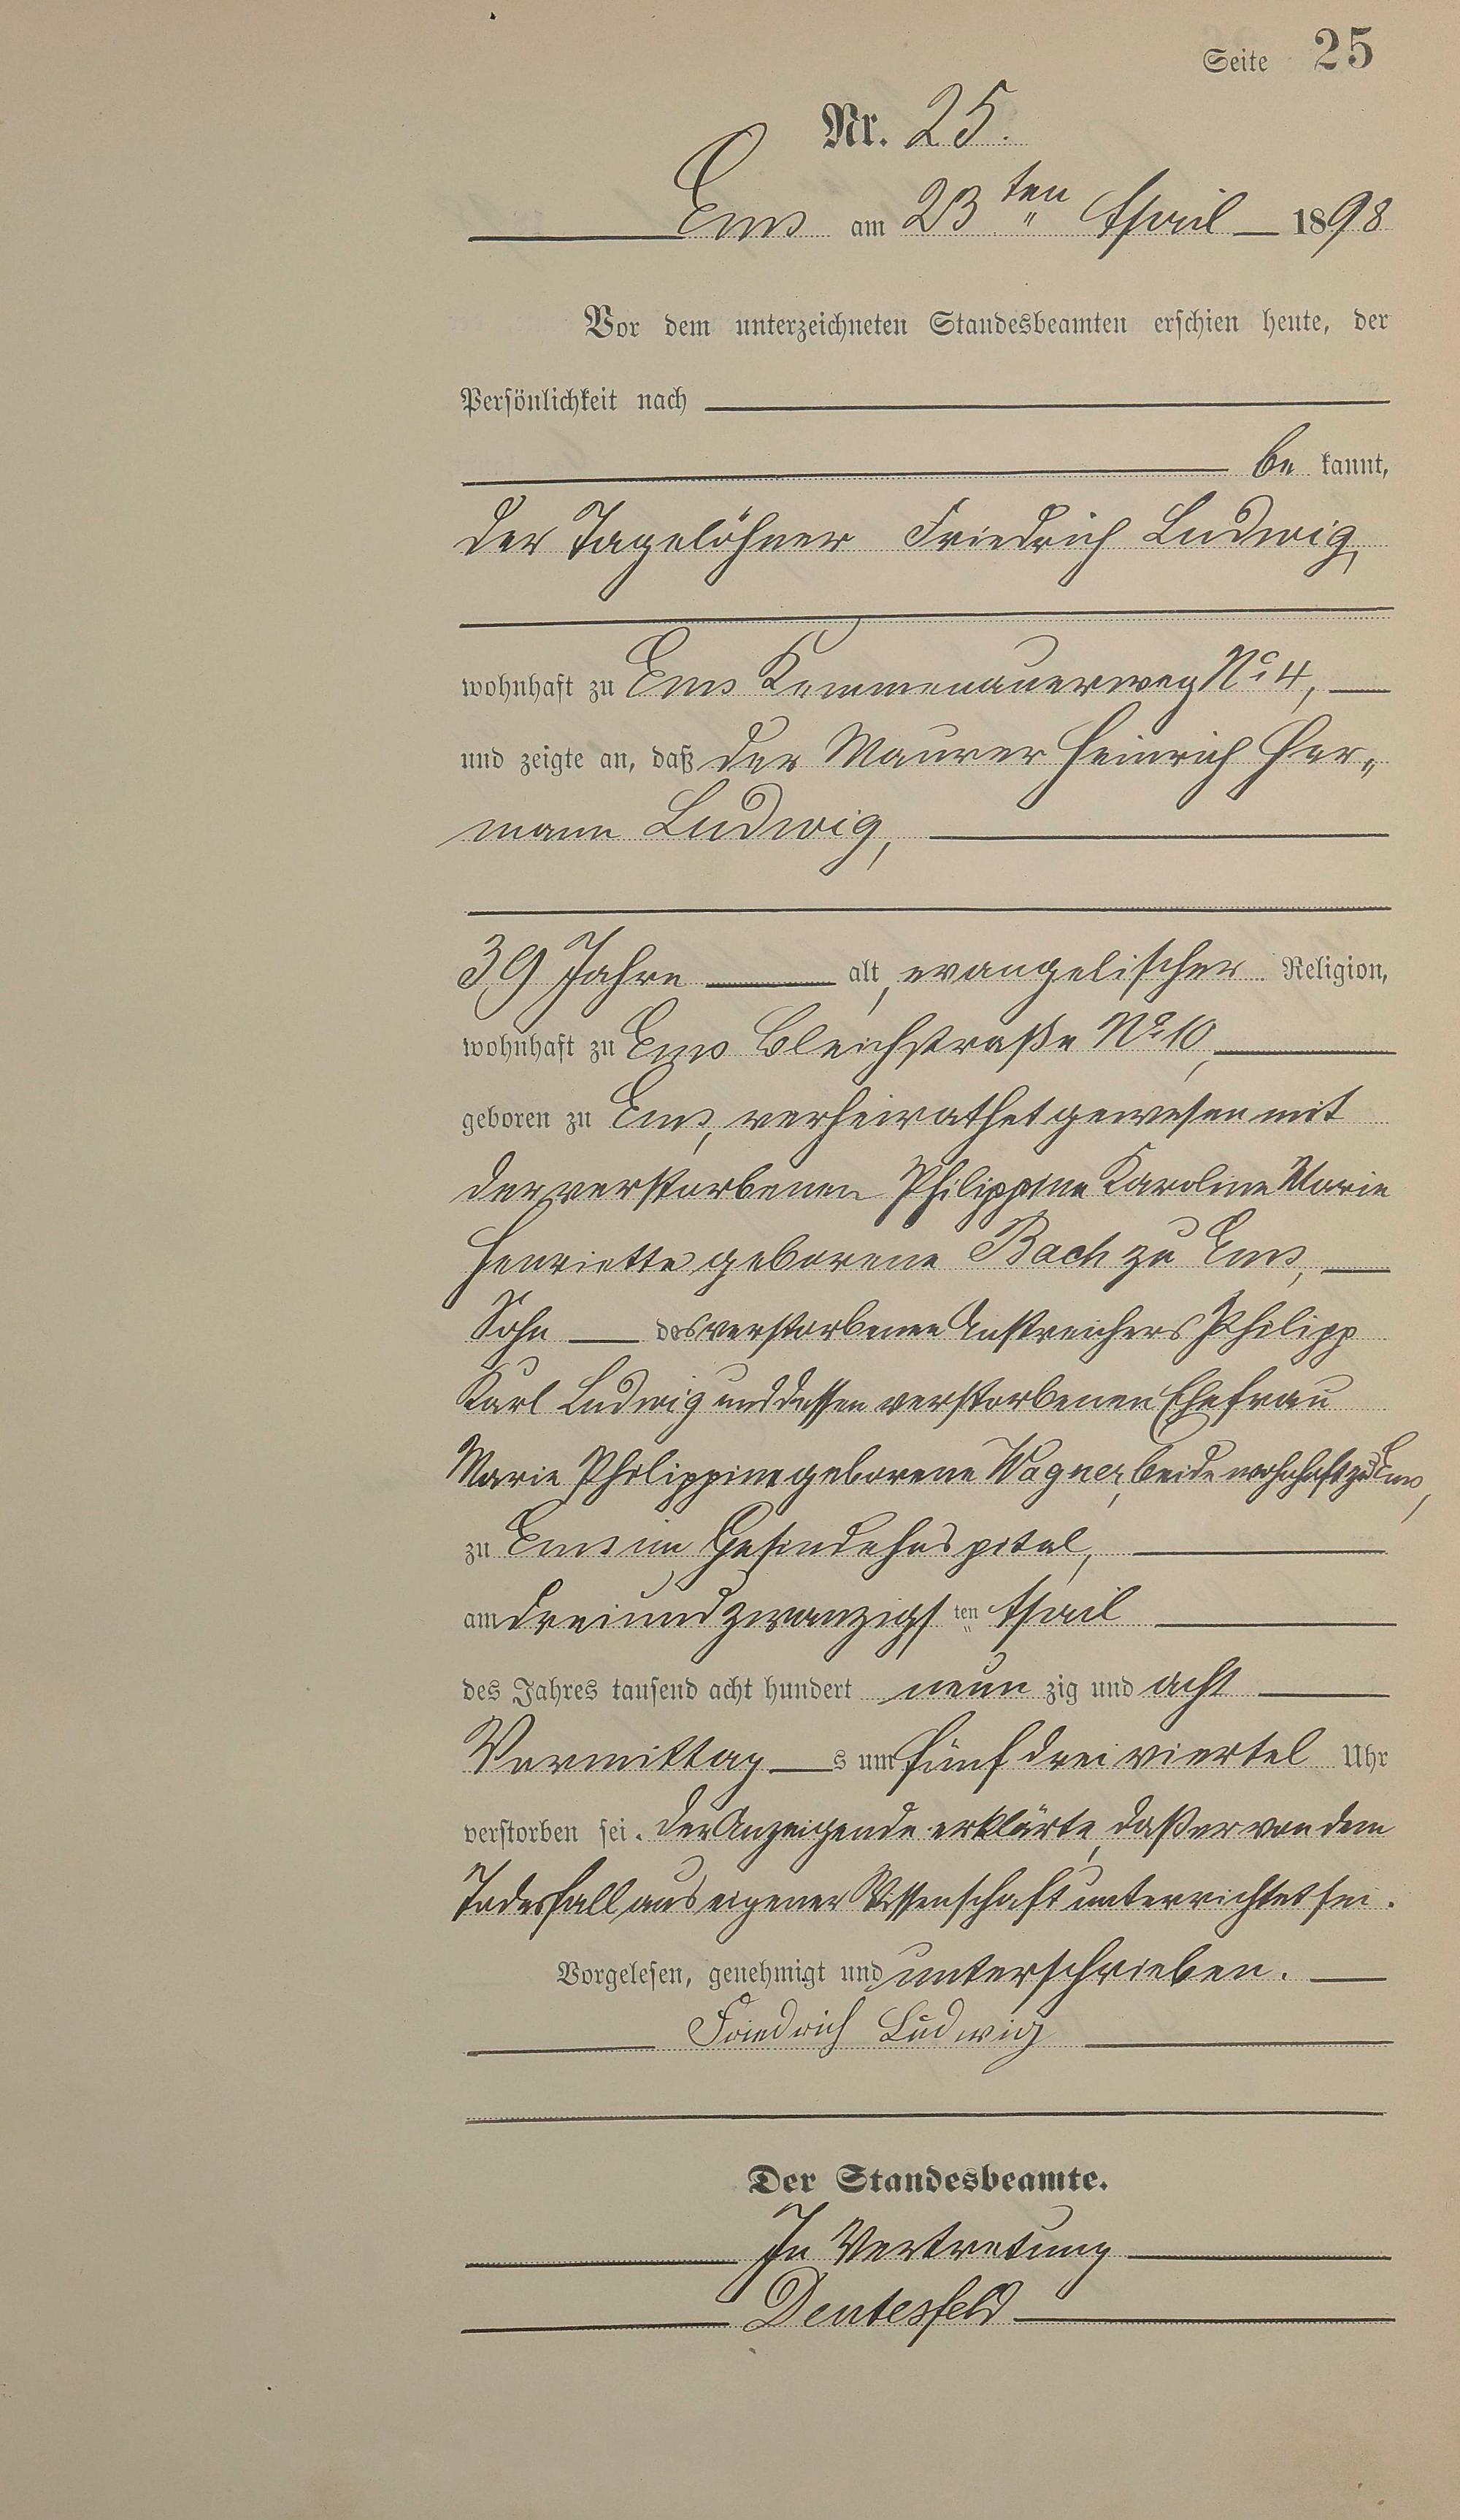 Seite 25
Nr. 25.
Ems am 23ten April 1898
Vor dem unterzeichneten Standesbeamten erschien heute, der
Persönlichkeit nach
be kannt,
der Tagelöhner Friedrich Ludwig,
wohnhaft zu Ems Kemmenauerweg No 4,
und zeigte an, daß der Maurer Heinrich Her„
mann Ludwig,
39 Jahre alt, evangelischer Religion,
wohnhaft zu Ems Bleichstraße No 10,
geboren zu Ems, verheirathet gewesen mit
der verstorbenen Philippine Karoline Marie
Henriette geborene Bach zu Ems,
Sohn des verstorbenen Anstreichers Philipp
Karl Ludwig und dessen verstorbenen Ehefrau
Marie Philippine geborene Wagner, beide wohnhaft zu Ems,
zu Ems im Gesindehospital,
am dreiundzwanzigsten April
des Jahres tausend acht hundert neun zig und acht
Vormittags um fünf drei viertel Uhr
verstorben sei. Der Anzeigende erklärte, daß er von dem
Todesfall aus eigener Wissenschaft unterrichtet sei.
Vorgelesen, genehmigt und unterschrieben.
Friedrich Ludwig
Der Standesbeamte.
In Vertretung